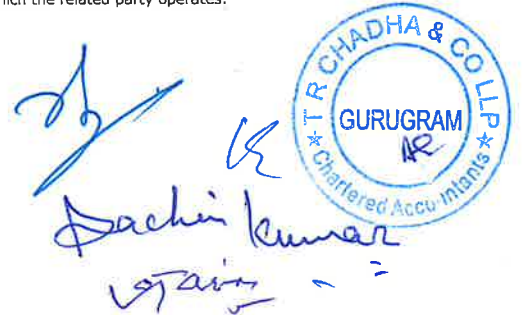 which the related party operates.
T R CHADHA & CO LLP
GURUGRAM
AR
Chartered Accountants
Sachin Kumar